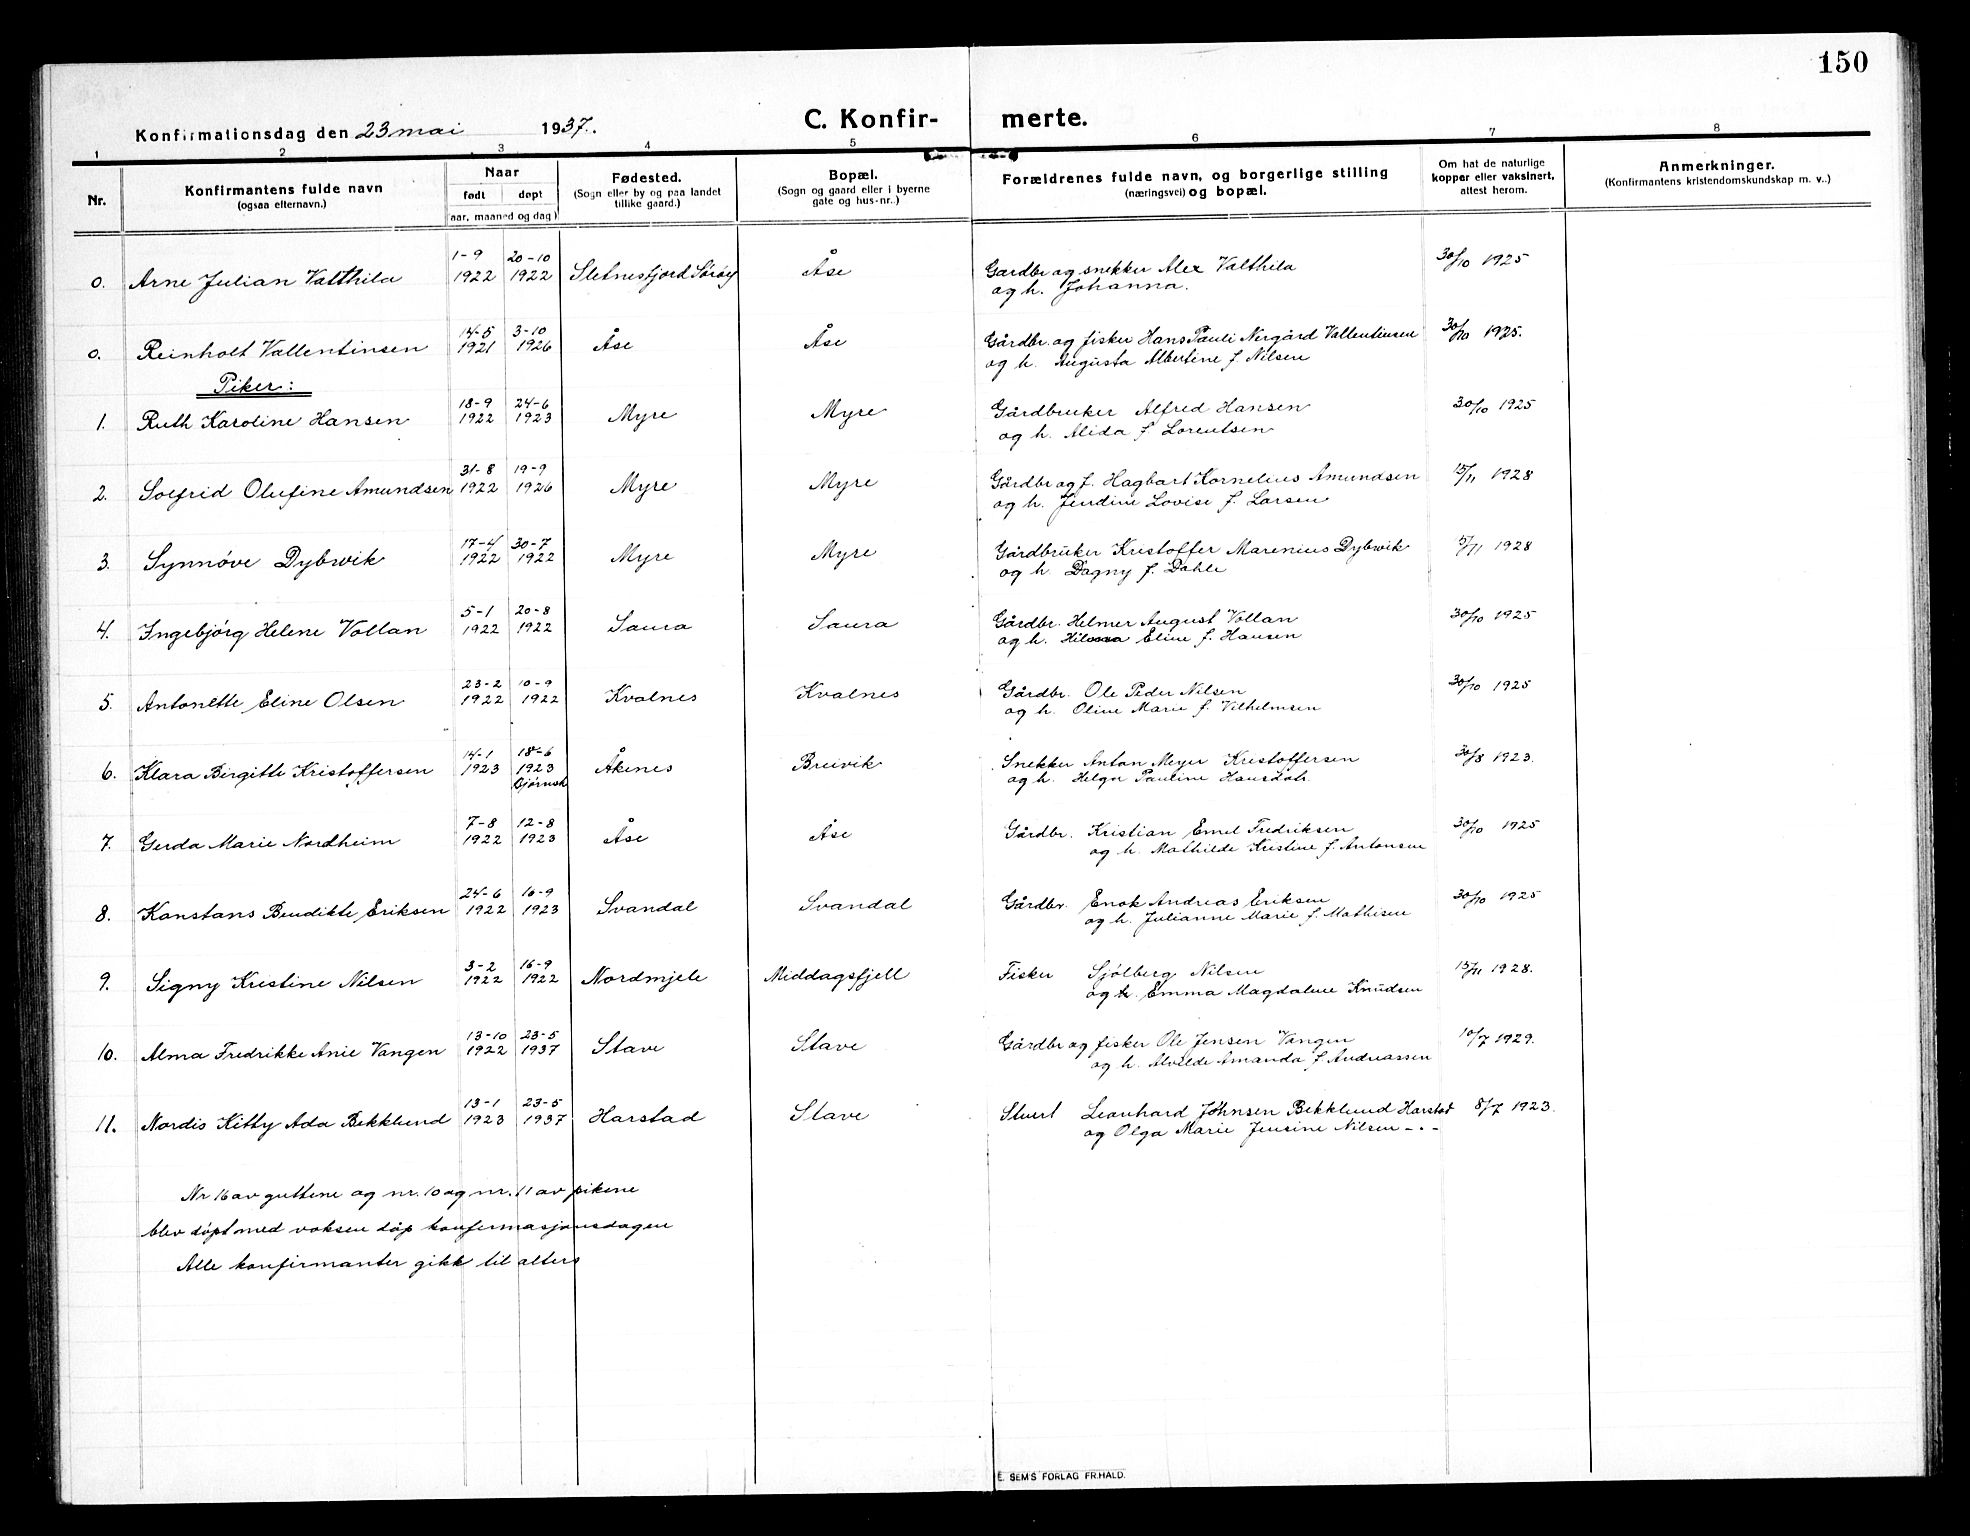 150
Konfirmationsdag den 23 mai 1937.
C. Konfir- merte.
1 2 3 4 5 6 7 8
Nr.
Konfirmantens fulde navn
(ogsaa efternavn.)
Naar
født døpt
(aar, maaned og dag)
Fødested.
(Sogn eller by og paa landet
tillike gaard.)
Bopæl.
(Sogn og gaard eller i byerne
gate og hus-nr..)
Forældrenes fulde navn, og borgerlige stilling
(næringsvei) og bopæl.
Om hat de naturlige
kopper eller vaksinert,
attest herom.
Anmerkninger.
(Konfirmantens kristendomskundskap m. v..)
1-9 20-10
0. Arne Julian Valthila 1922 1922 Sletnesfjord Sørøy Åse Gardbr og snekker Alex Valthila 30/10 1925
og h. Johanna.
14-5 3-10
0. Reinholt Vallentinsen 1921 1926 Åse Åse Gårdbr. og fisker Hans Pauli Nergård Vallentinsen 30/10 1925.
og h. Augusta Albertine f. Nilsen
Piker:
18-9 24-6
1. Ruth Karoline Hansen 1922 1923 Myre Myre Gårdbruker Alfred Hansen 30/10 1925
og h. Alida f. Lorentsen
31-8 19-9
2. Solfrid Olufine Amundsen 1922 1926 Myre Myre Gårdbr og f. Hagbart Kornelius Amundsen 15/11 1928
og h. Jendine Lovise f. Larsen
17-4 30-7
3. Synnøve Dybwik 1922 1922 Myre Myre Gårdbruker Kristoffer Marenius Dybwik 15/11 1928
og h. Dagny f. Dahle
5-1 20-8
4. Ingebjørg Helene Vollan 1922 1922 Saura Saura Gårdbr. Helmer August Vollan 30/10 1925
og h. Eline f. Hansen
23-2 10-9
5. Antonette Eline Olsen 1922 1922 Kvalnes Kvalnes Gårdbr. Ole Peder Nilsen 30/10 1925
og h. Oline Marie f. Vilhelmsen
14-1 18-6
6. Klara Birgitte Kristoffersen 1923 1923 Åknes Breivik Snekker Anton Meyer Kristoffersen 30/8 1923.
Bjørnsk og h. Helga Pauline Hansdatr.
7-8 12-8
7. Gerda Marie Nordheim 1922 1923 Åse Åse Gårdbr. Kristian Emil Fredriksen 30/10 1925
og h. Mathilde Kristine f. Antonsen
24-6 16-9
8. Konstans Bendikte Eriksen 1922 1923 Svandal Svandal Gårdbr. Enok Andreas Eriksen 30/10 1925
og h. Julianne Marie f. Mathisen
3-2 16-9
9. Signy Kristine Nilsen 1922 1922 Nordmjele Middagsfjell Fisker Sjølberg Nilsen 15/11 1928.
og h. Emma Magdalene Knudsen
13-10 23-5
10. Alma Fredrikke Anie Vangen 1922 1937 Stave Stave Gårdbr og fisker Ole Jensen Vangen 10/7 1929.
og h. Alvilde Amanda f. Andreassen
13-1 23-5
11. Nordis Kitty Ada Bekklund 1923 1937 Harstad Stave Stuert Leonhard Johnsen Bekklund Harstad 8/7 1923.
og Olga Marie Jensine Nilsen - . -
Nr 16 av guttene og nr. 10 og nr. 11 av pikene
blev døpt med voksen dåp konfirmasjonsdagen
Alle konfirmanter gikk til alters
E. SEM'S FORLAG FR.HALD.